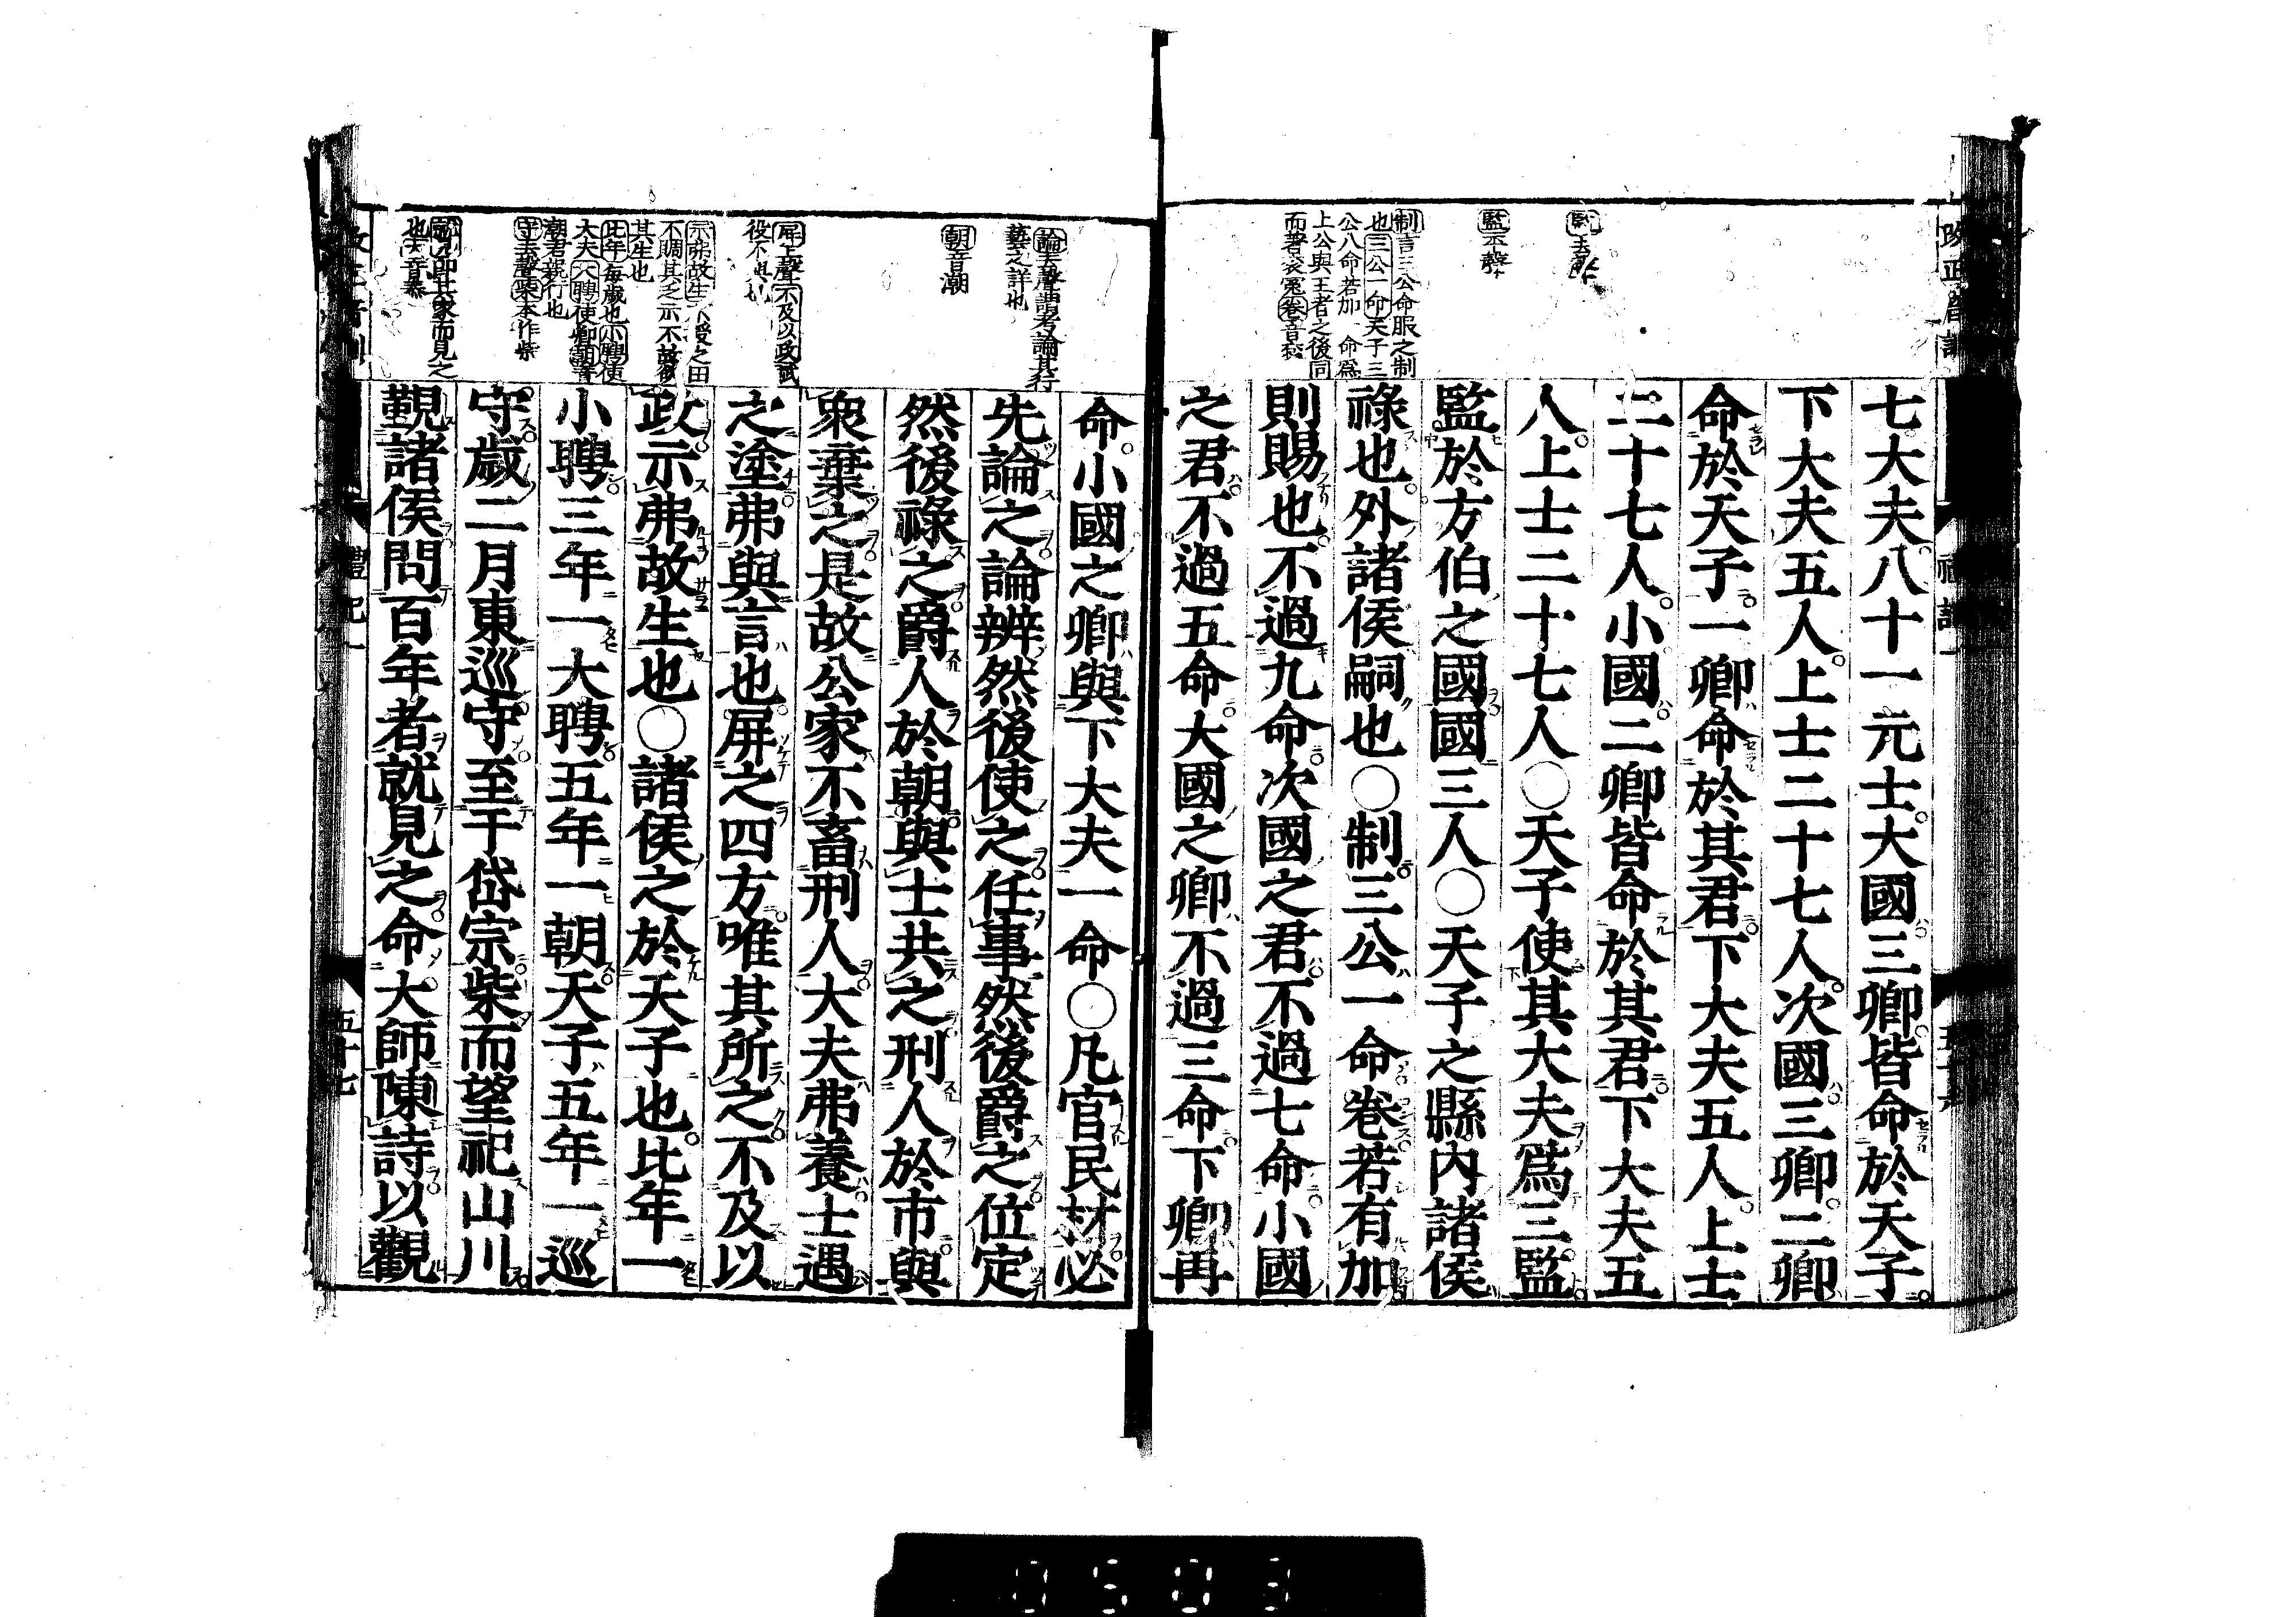 監平聲
制言三公命服之制
也三公一命天子三
公八命若加一命爲
上公與王者之後同
而著衮冕卷音衮
七大夫八十一元士大國三卿皆命於天子
下大夫五人上士二十七人次國三卿二卿
命於天子一卿命於其君下大夫五人上士
二十七人小國二卿皆命於其君下大夫五
人上士二十七人○天子使其大夫爲三監
監於方伯之國國三人○天子之縣內諸侯
祿也外諸侯嗣也○制三公一命卷若有加
則賜也不過九命次國之君不過七命小國
之君不過五命大國之卿不過三命下卿再
論去聲謂考論其行
藝之詳也
朝音潮
屏上聲不及以政賦
役不與也
示弗故生不授之田
不賙其乏示不故欲
其生也
比年每歲也小聘使
大夫大聘使卿朝音
潮君親行也
守去聲柴本作祡
就見即其家而見之
也
命小國之卿與下大夫一命○凡官民材必
先論之論辨然後使之任事然後爵之位定
然後祿之爵人於朝與士共之刑人於市與
衆棄之是故公家不畜刑人大夫弗養士遇
之塗弗與言也屏之四方唯其所之不及以
政示弗故生也○諸侯之於天子也比年一
小聘三年一大聘五年一朝天子五年一巡
守歲二月東巡守至于岱宗柴而望祀山川
覲諸侯問百年者就見之命大師陳詩以觀
禮記一
五十七
0503